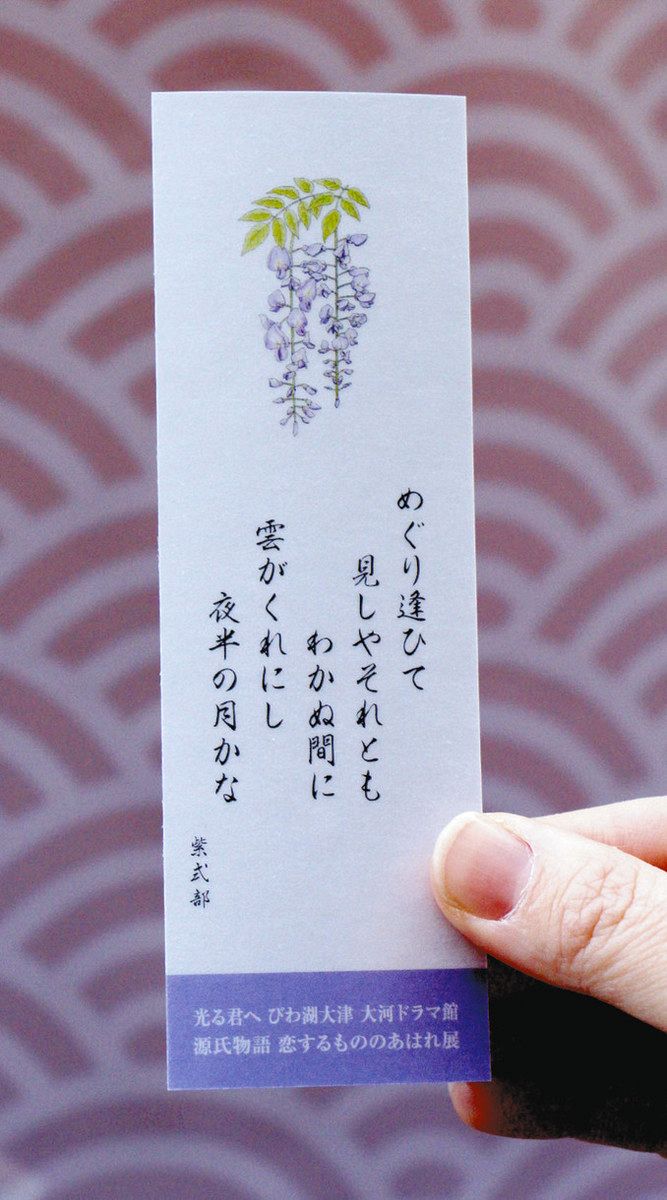 めぐり逢ひて
見しやそれとも
わかぬ間に
雲がくれにし
夜半の月かな
紫式部
光る君へ びわ湖大津 大河ドラマ館
源氏物語 恋するもののあはれ展